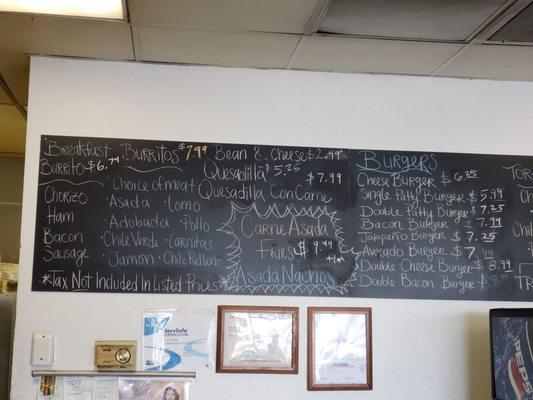 Breakfast
Burrito $6.74
Chorizo
Ham
Bacon
Sausage
Burritos $7.99
Choice of meat
·Asada ·Lomo
·Adobada ·Pollo
·Chile Verde ·Carnitas
·Jamon ·Chile Relleno
*Tax Not Included In Listed Prices*
Bean & Cheese $2.49
Quesadilla $5.25
Quesadilla Con Carne $7.99
Carne Asada
Fries $9.49
+tax
Asada Nachos
Burgers
Cheese Burger $6.25
Single Patty Burger $5.99
Double Patty Burger $7.25
Bacon Burger $7.99
Jalapeño Burger $7.25
Avocado Burger $7
Double Cheese Burger $8.99
Double Bacon Burger $9
Tor
Ch
Chi
TR
ServSafe
PEPSI